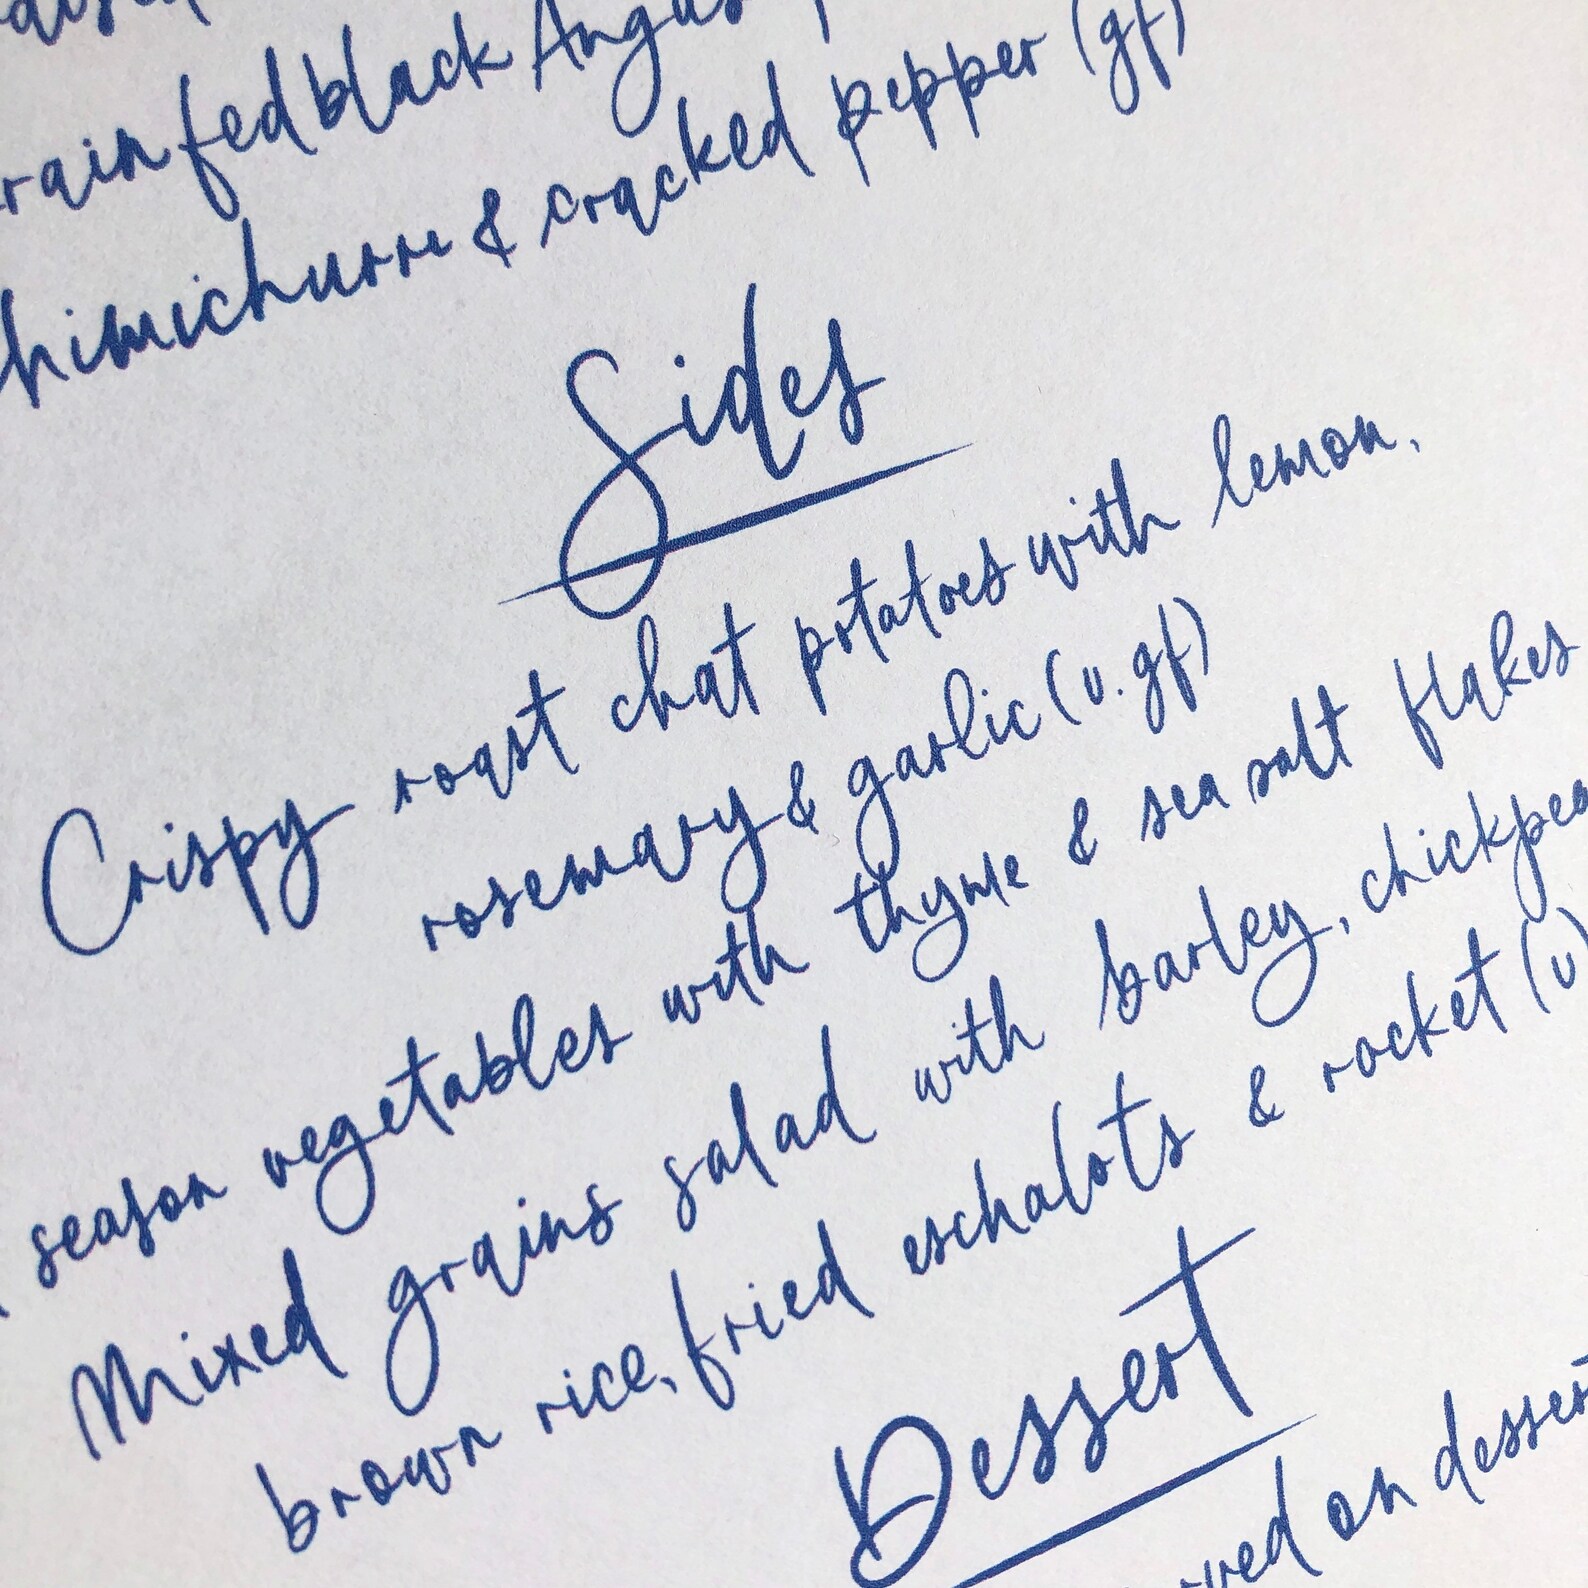 rain fed black Angus
himichurri & cracked pepper (gf)
Sides
Crispy roast chat potatoes with lemon,
rosemary & garlic (v. gf)
season vegetables with thyme & sea salt flakes
Mixed grains salad with barley, chickpea
brown rice, fried eschalots & rocket (v)
Dessert
ved on dessert